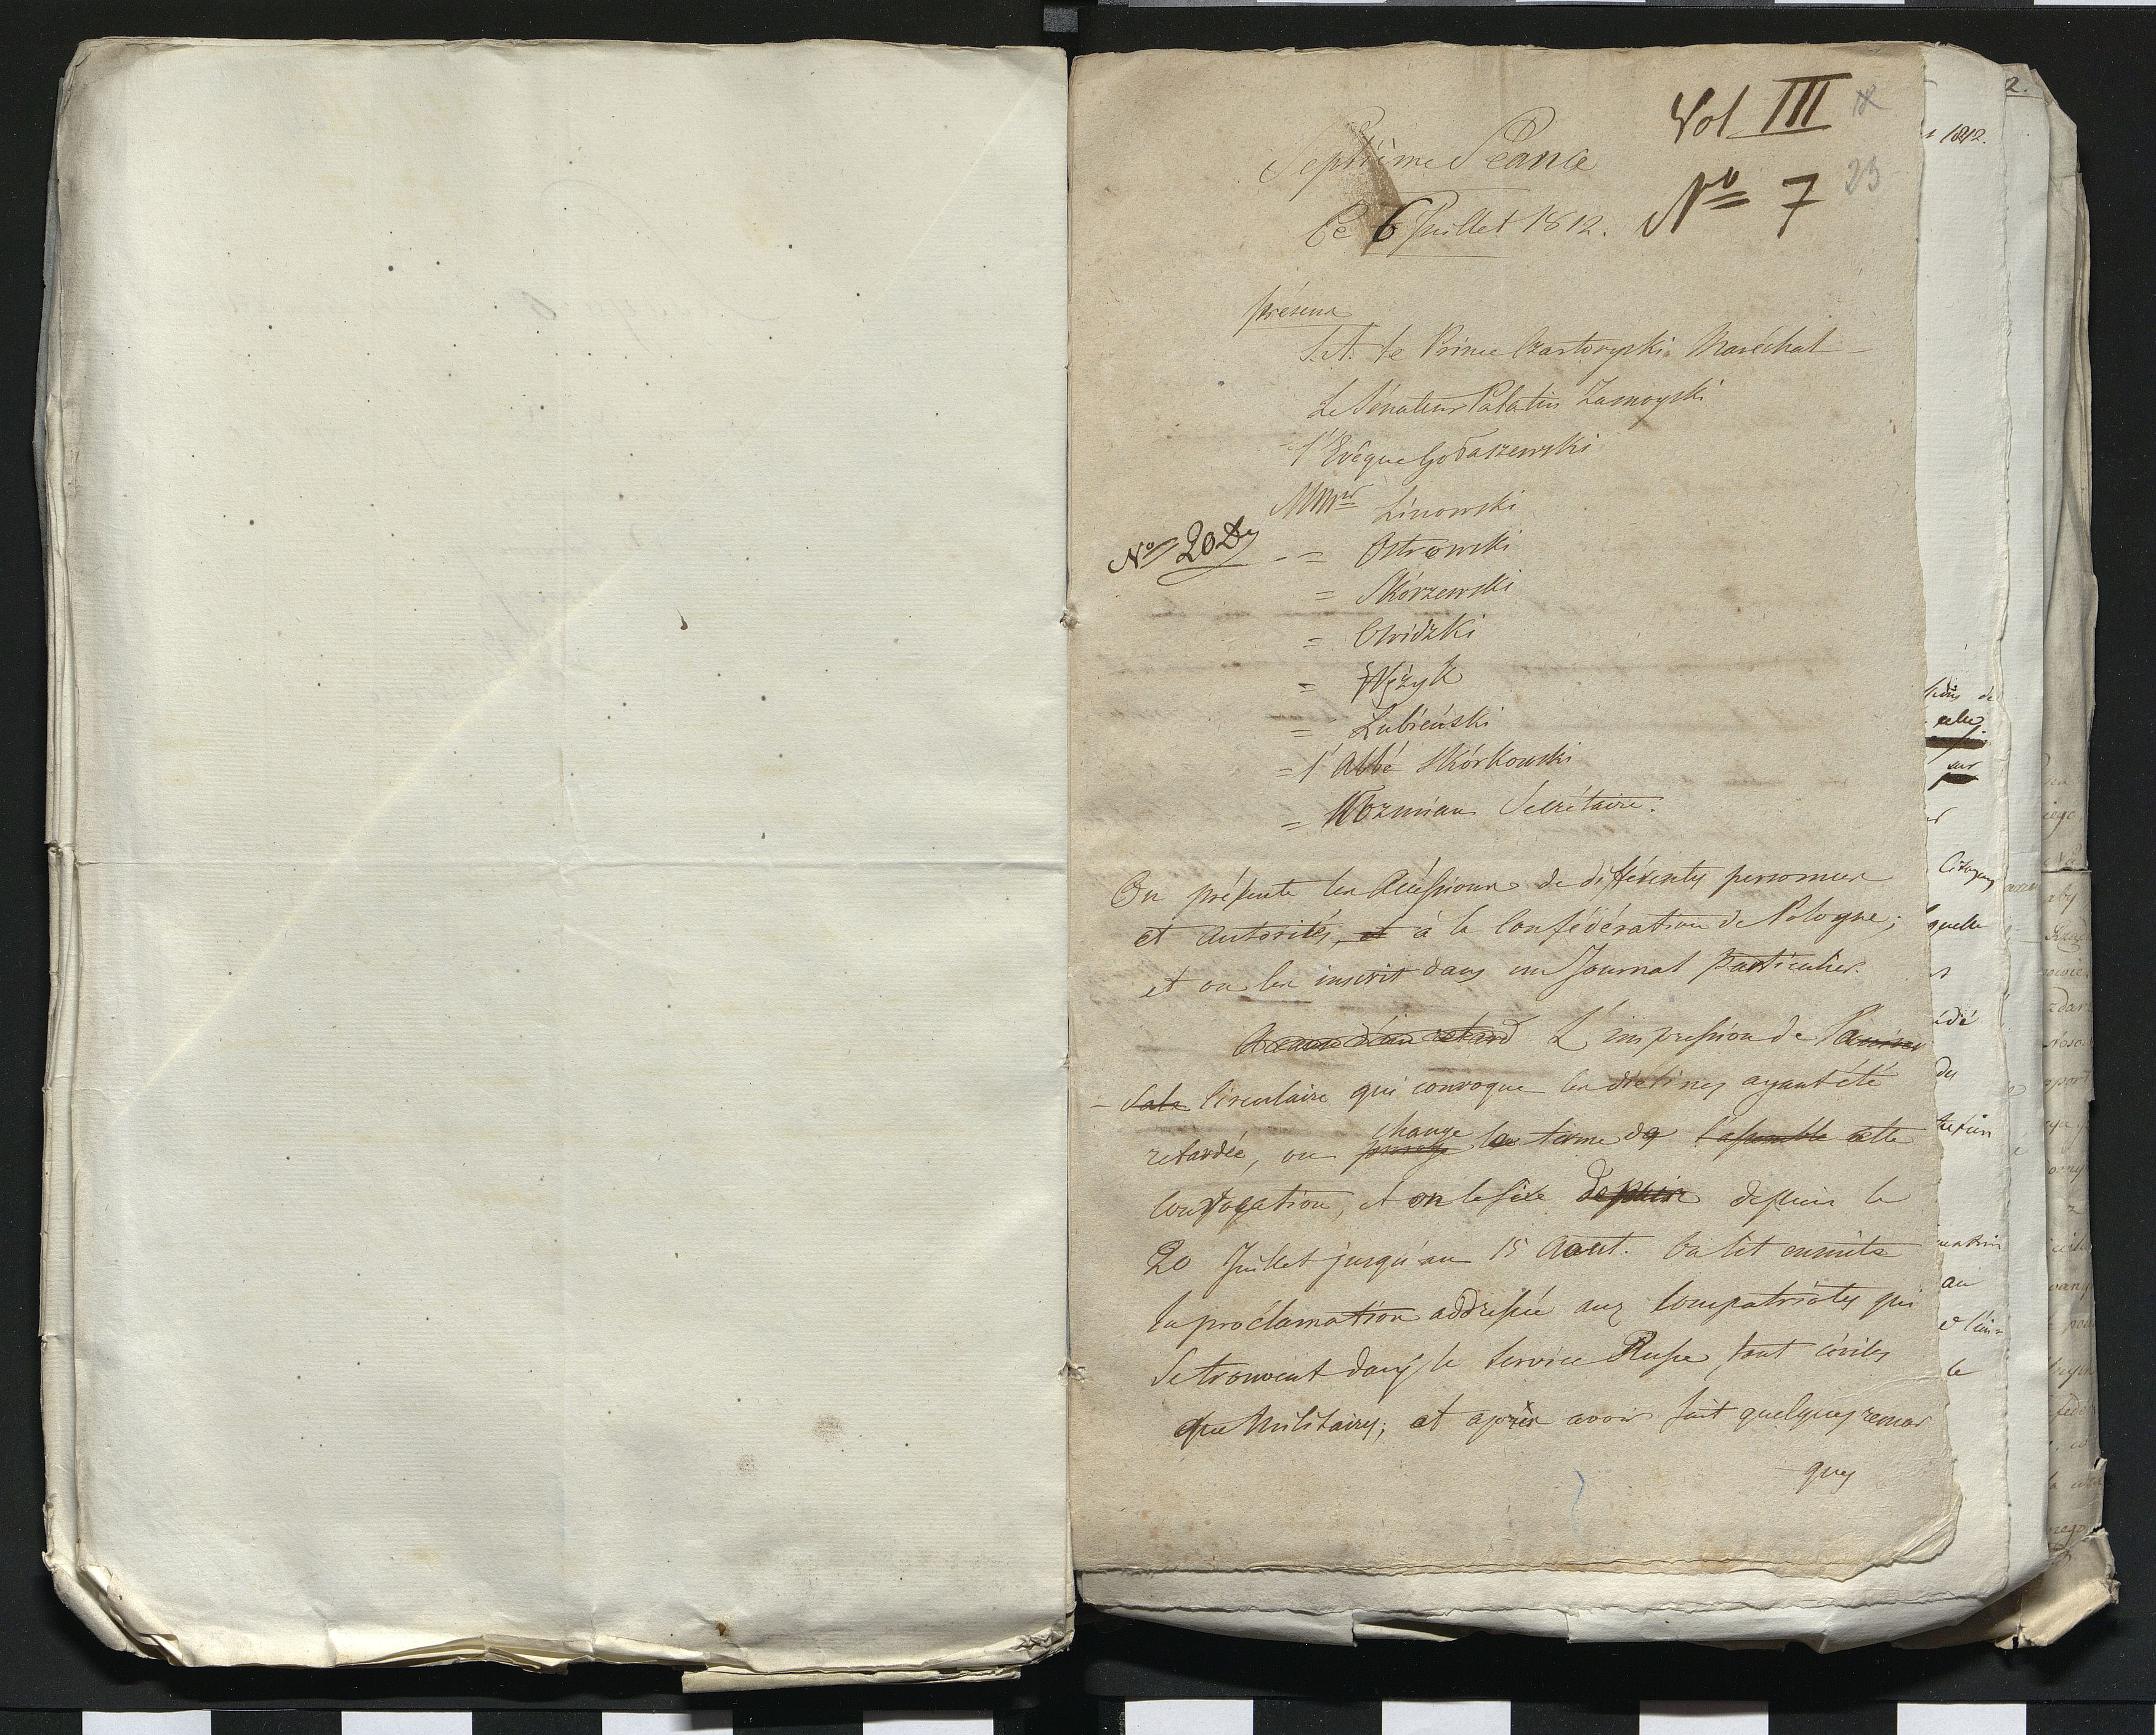 Vol III
Septième Séance
Nº 7 23
Ce 6 Juillet 1812.
présens
S.A. le Prince Czartoryski Maréchal
Le Sénateur Palatin Zamoyski
l'Evêque Gołaszewski
Mmrs Linowski
Nº 20
= Ostrowski
= Skórzewski
= Owidzki
= Wężyk
= Łubieński
= l'Abbé Skórkowski
= Kozmian Secrétaire.
On présente les Accéssions de différents personnes
et autorités, et à la Confédération de Pologne;
et on les inscrit dans un Journal particulier.
A cause d'un retard L'impression de
circulaire qui convoque les diétines ayant été
change
retardée, on le terme de l'assemblé cette
convocation, et on le fixe depuis depuis le
20 Juillet jusqu'au 15 Aout. On lit ensuite
la proclamation addressée aux Compatriotes qui
se trouvent dans le service Russe, tant civiles
que Militaires; et après avoir fait quelques remar
ques
1812.
2.
celle
sur
Citoyens
quelle
des
au
le